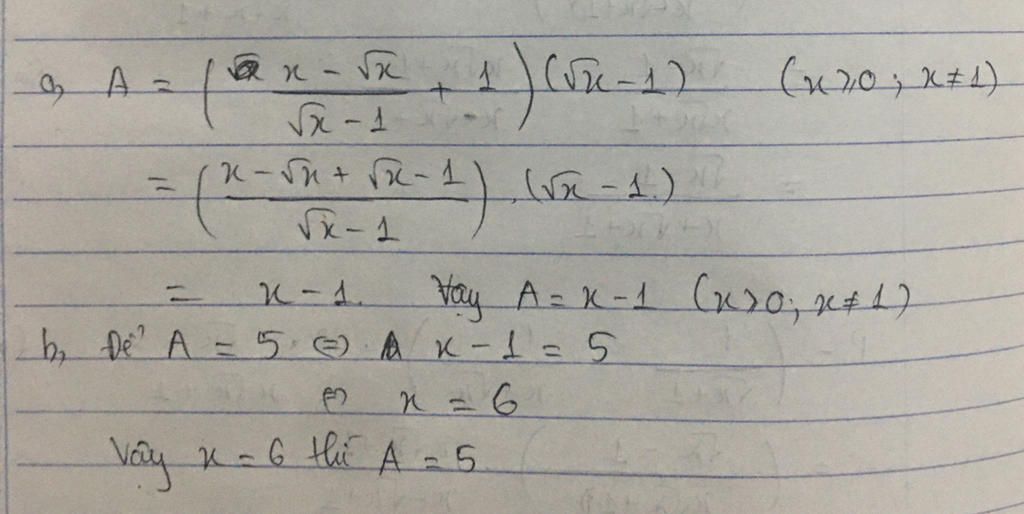 a, A = ( (x - √x)/(√x - 1) + 1 ) (√x - 1) (x ≥ 0 ; x ≠ 1)
= ( (x - √x + √x - 1)/(√x - 1) ) . (√x - 1)
= x - 1. Vậy A = x - 1 (x ≥ 0; x ≠ 1)
b, Để A = 5 ⇔ x - 1 = 5
⇔ x = 6
Vậy x = 6 thì A = 5